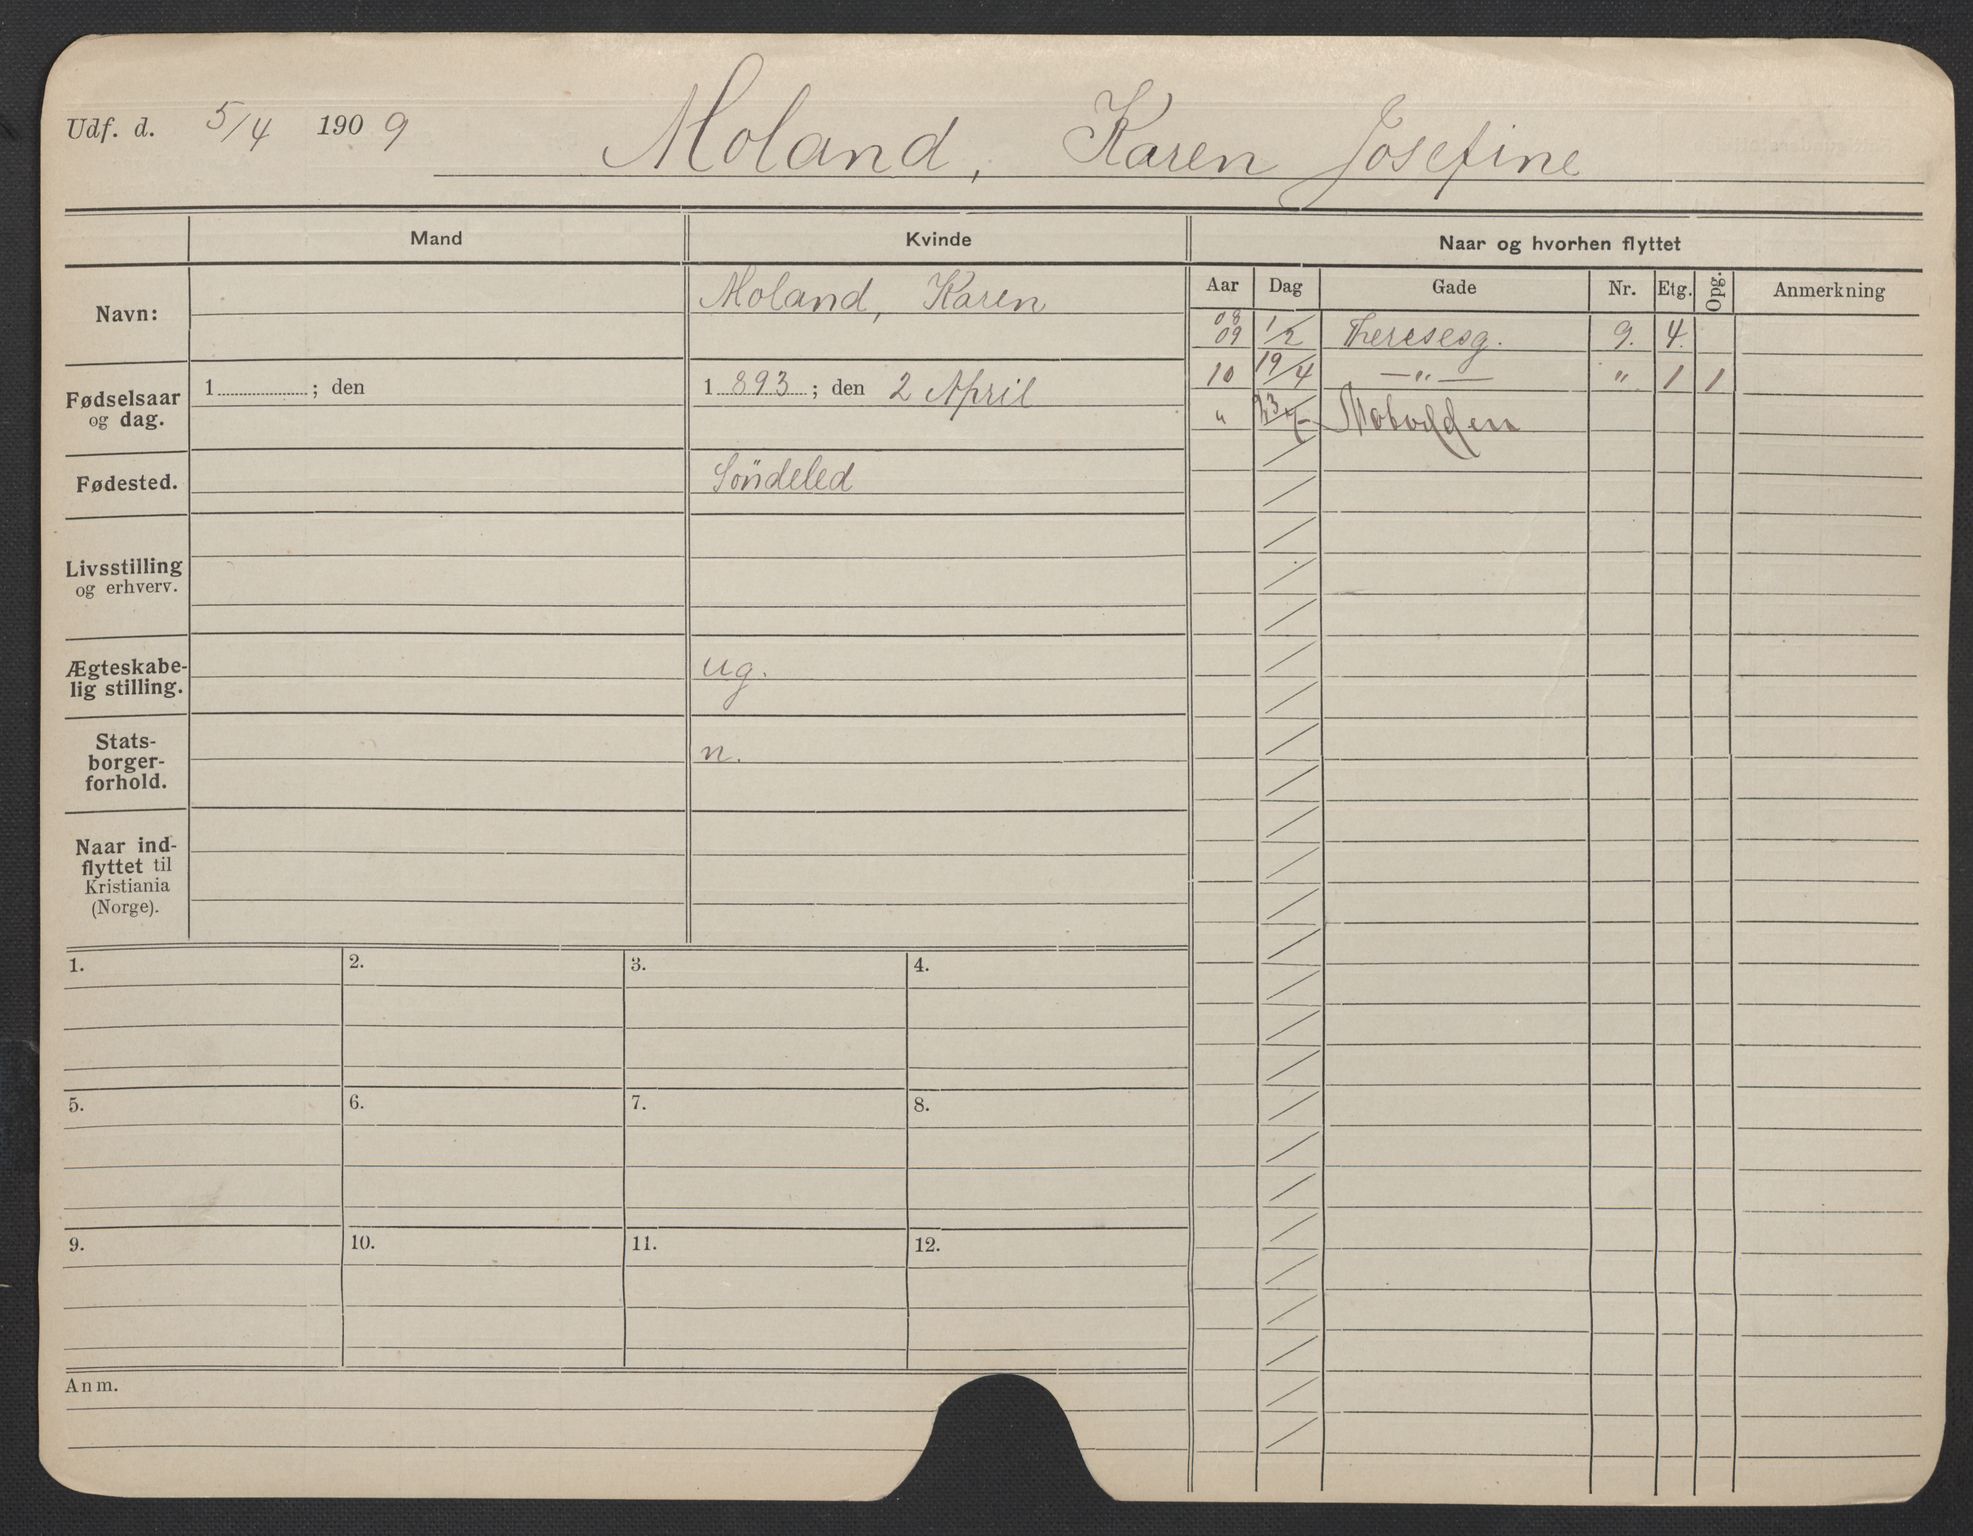 Udf. d. 5/4 1909 Moland, Karen Josefine
Mand Kvinde Naar og hvorhen flyttet
Aar Dag Gade Nr. Etg. Opg. Anmerkning
Navn: Moland, Karen
08
09 1/2 Theresesg. 9. 4.
10 19/4 — " — " 1 1
"
Fødselsaar
og dag.
1 ; den
1893 ; den 2 April
Fødested. Söndeled
Livsstilling
og erhverv.
Ægteskabe-
lig stilling. ug.
Stats-
borger-
forhold. n.
Naar ind-
flyttet til
Kristiania
(Norge).
1. 2. 3. 4.
5. 6. 7. 8.
9. 10. 11. 12.
Anm.